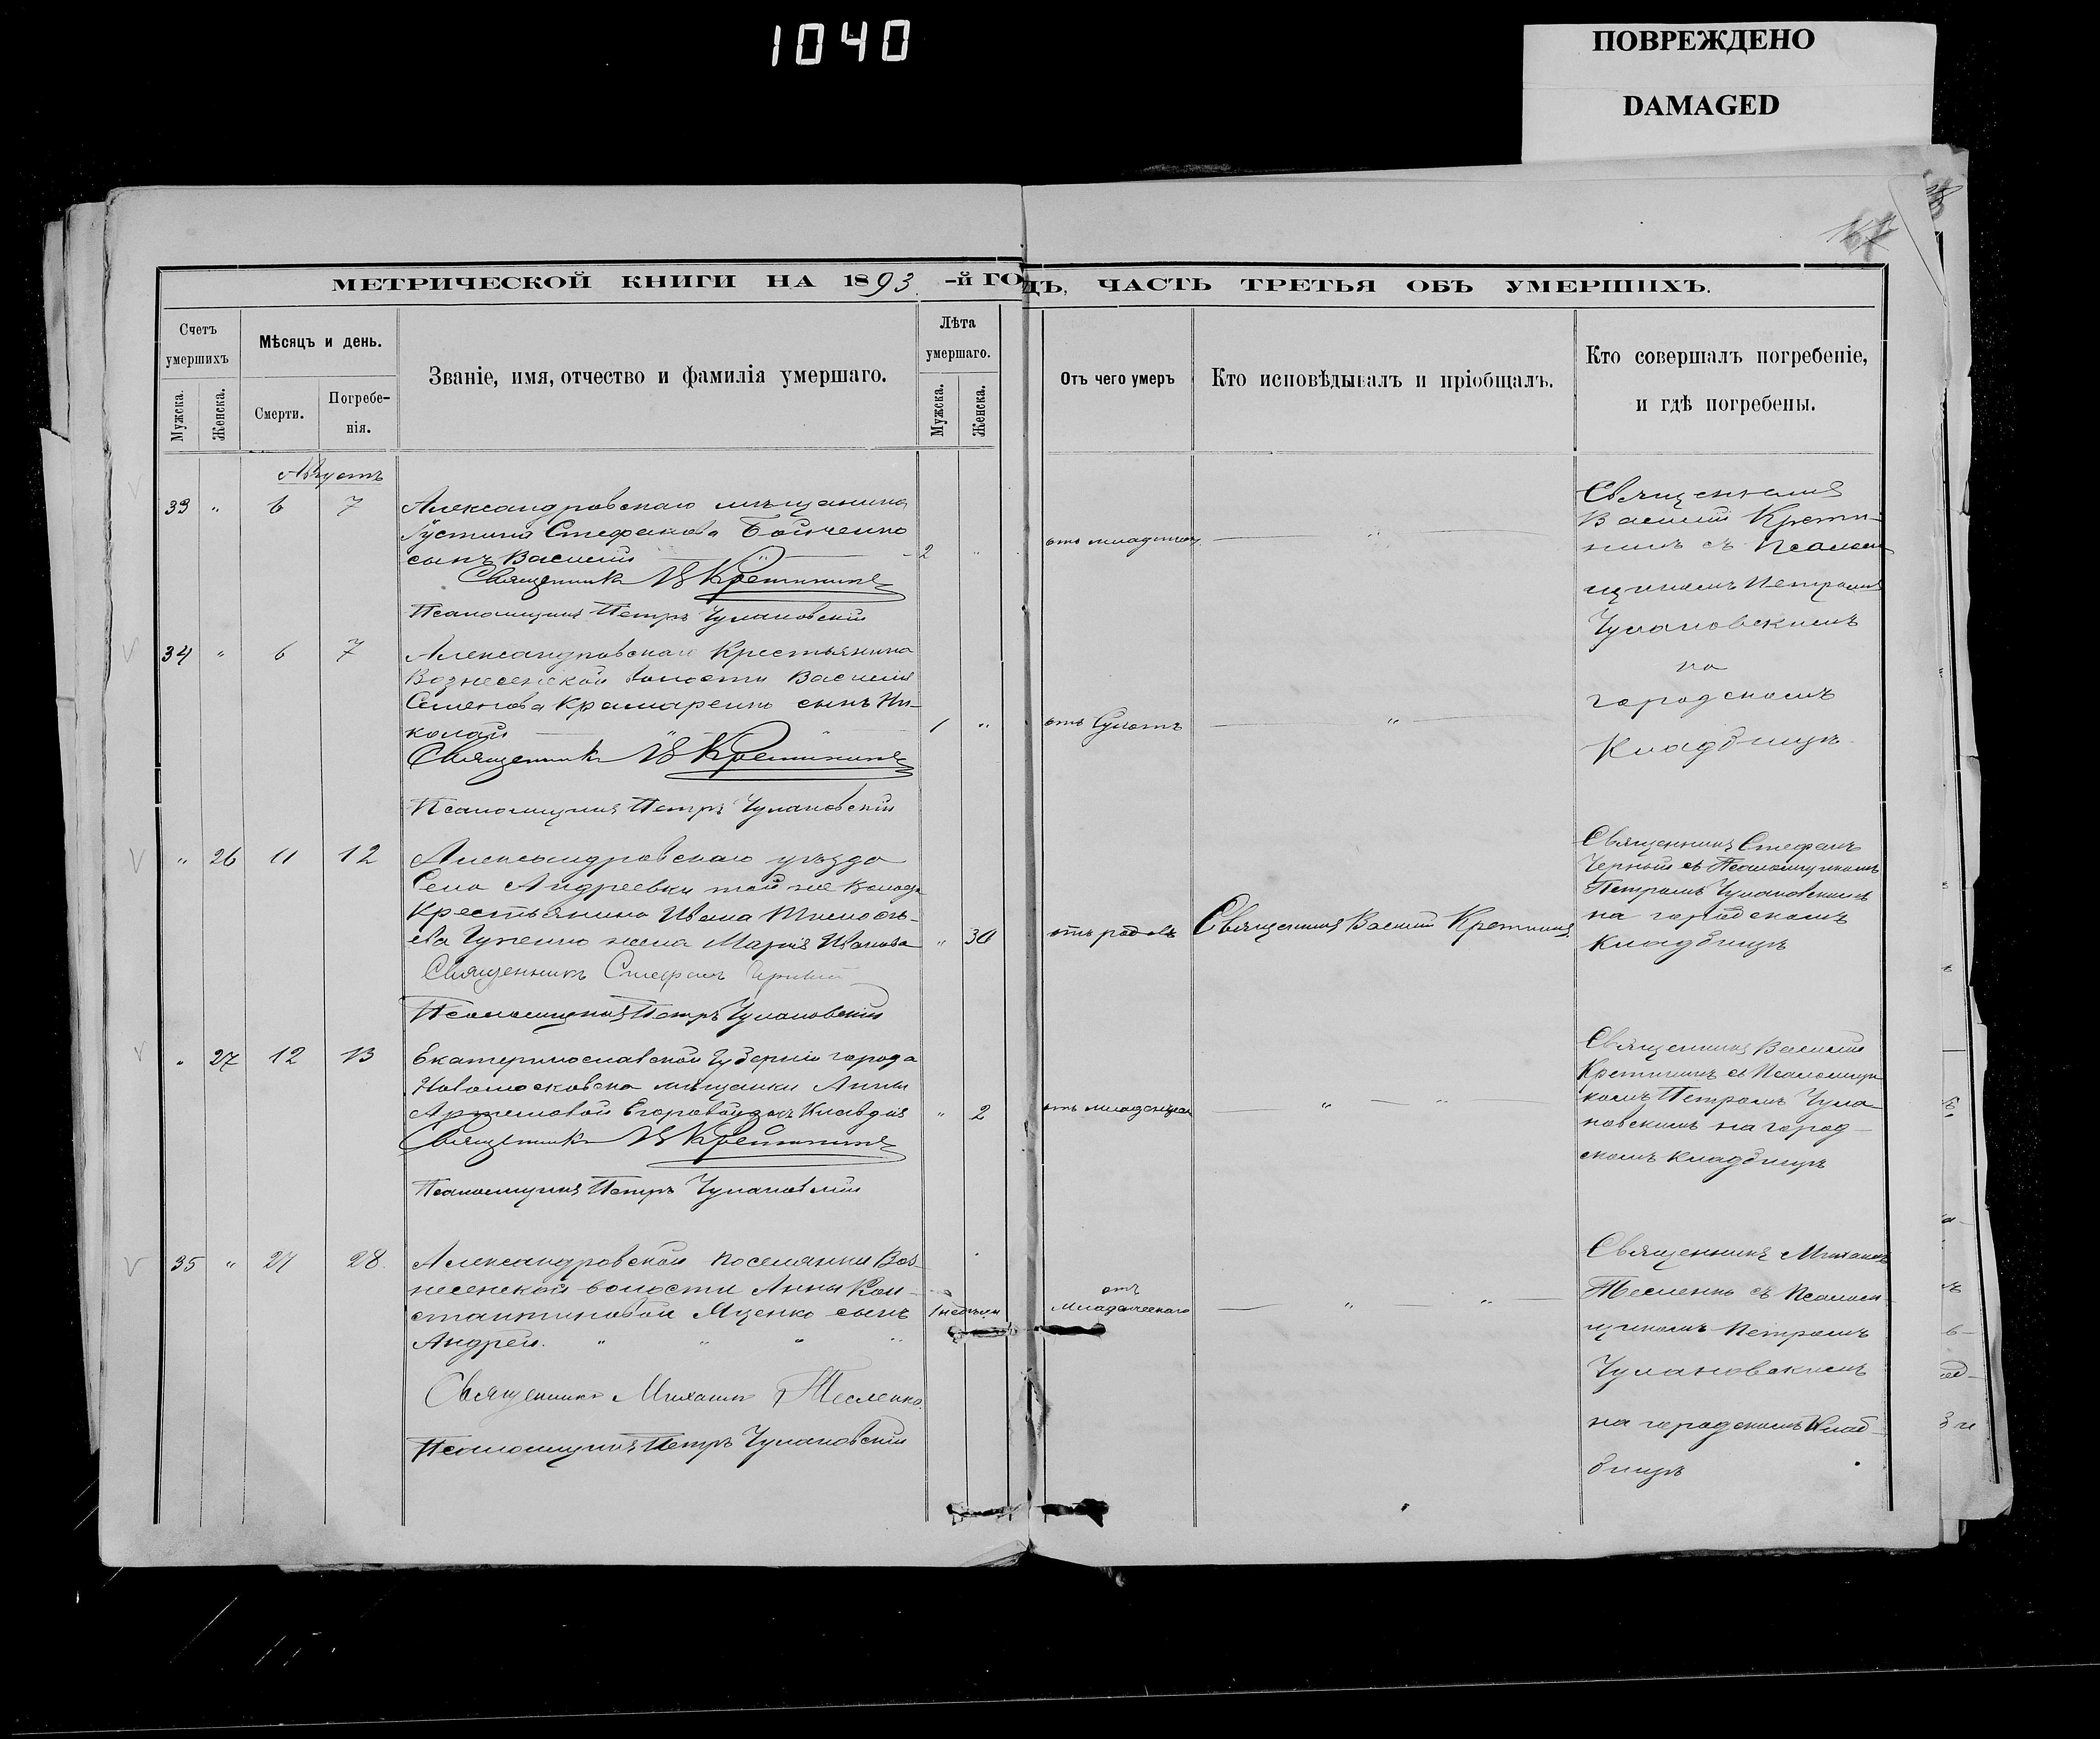 1040
ПОВРЕЖДЕНО
DAMAGED
МЕТРИЧЕСКОЙ КНИГИ НА 1893 -й ГОДЪ, ЧАСТЬ ТРЕТЬЯ ОБЪ УМЕРШИХЪ.
Счетъ умершихъ
Мѣсяцъ и день.
Званіе, имя, отчество и фамилія умершаго.
Лѣта умершаго.
Отъ чего умеръ
Кто исповѣдывалъ и пріобщалъ.
Кто совершалъ погребеніе,
и гдѣ погребены.
Мужска.
Женска.
Смерти.
Погребе-
нія.
Мужска.
Женска.
Августъ
33 " 6 7
Александровскаго мѣщанина
Густина Стефанова Бойченко
сынъ Василій " 2 "
Священникъ В Кретининъ
Псаломщикъ Петръ Чулановскій
отъ младенч "
Священникъ
Василій Крети-
нинъ съ Псалом-
щикомъ Петромъ
Чулановскимъ
на
городскомъ
Кладбищѣ
34 " 6 7
Александровскаго Крестьянина
Вознесенской волости Василія
Семенова Крамаренко сынъ Ни-
колай 1 "
Священникъ В Кретининъ
Псаломщикъ Петръ Чулановскій
"
" 26 11 12
Александровскаго уѣзда
Села Андреевки той же волости
Крестьянина Ивана Тимофѣ-
ева жена Марія Иванова " 30
Священникъ Стефанъ Черный
Псаломщикъ Петръ Чулановскій
отъ родовъ
Священникъ Василій Кретининъ
Священникъ Стефанъ
Черный съ Псаломщикомъ
Петромъ Чулановскимъ
на городскомъ
кладбищѣ
" 27 12 13
Екатеринославской губерніи города
Новомосковска мѣщанки Анны
Артемовой Егоровой дочь Клавдія " 2
Священникъ В Кретининъ
Псаломщикъ Петръ Чулановскій
отъ младенческ
" "
Священникъ Василій
Кретининъ съ Псаломщи-
комъ Петромъ Чула-
новскимъ на город-
скомъ кладбищѣ
35 " 27 28
Александровской поселянки Воз-
несенской волости Анны Кон-
стантиновой Яценко сынъ 1 недѣли
Андрей. " " " "
Священникъ Михаилъ Тесленко.
Псаломщикъ Петръ Чулановскій
отъ
младенческаго
" "
Священникъ Михаилъ
Тесленко съ Псалом-
щикомъ Петромъ
Чулановскимъ
на городскомъ Клад-
бищѣ